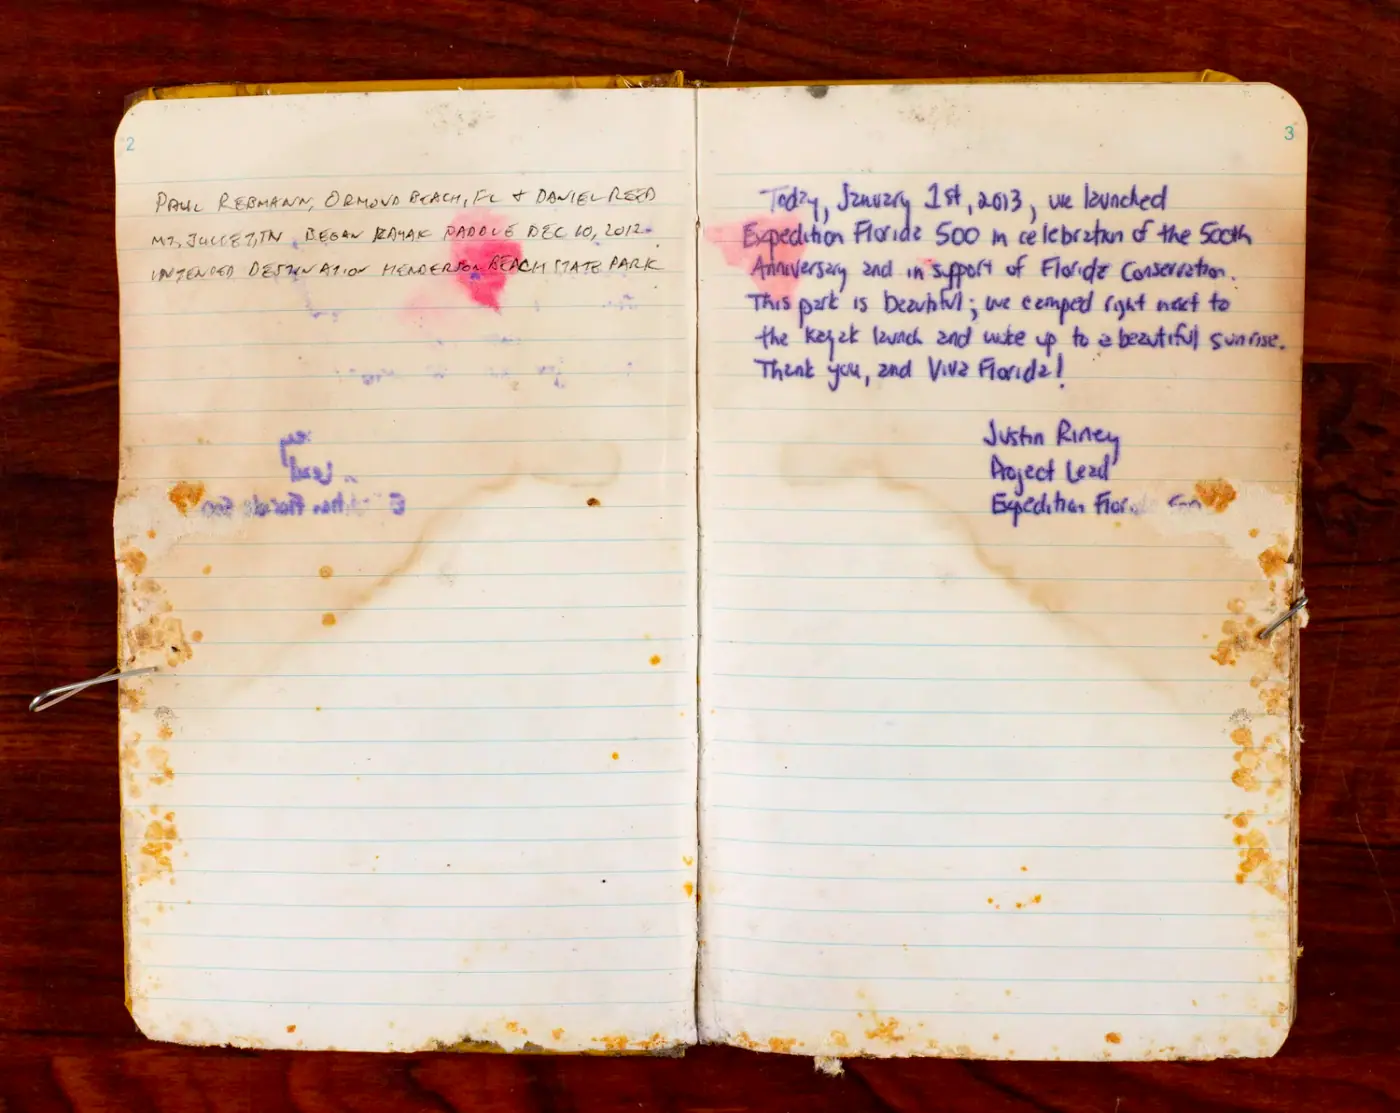 2
PAUL REBMANN, ORMOND BEACH, FL + DANIEL REED
MT. JULIET, TN BEGAN KAYAK PADDLE DEC 10, 2012.
INTENDED DESTINATION HENDERSON BEACH STATE PARK
3
Today, January 1st, 2013, we launched
Expedition Florida 500 in celebration of the 500th
Anniversary and in support of Florida Conservation.
This park is beautiful; we camped right next to
the kayak launch and woke up to a beautiful sunrise.
Thank you, and Viva Florida!
Justin Riney
Project Lead
Expedition Florida 500